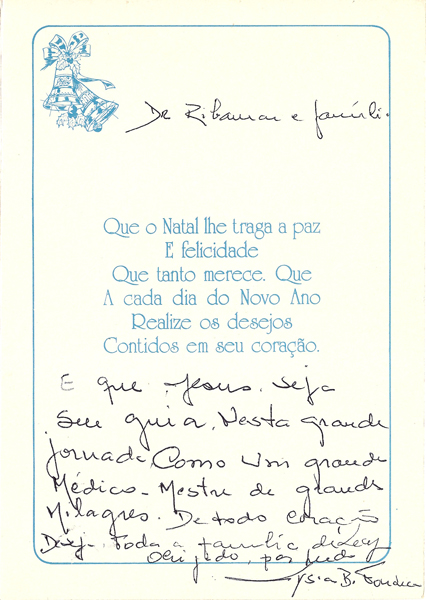 Dr Ribamar e famíli.
Que o Natal lhe traga a paz
E felicidade
Que tanto merece. Que
A cada dia do Novo Ano
Realize os desejos
Contidos em seu coração.
E que Jesus. seja
seu guia, Nesta grande
jornada, Como um grande
Médico - Mestre de grandes
Milagres. De todo coração
Toda a família
Obrigado, por tudo
B. Fonseca